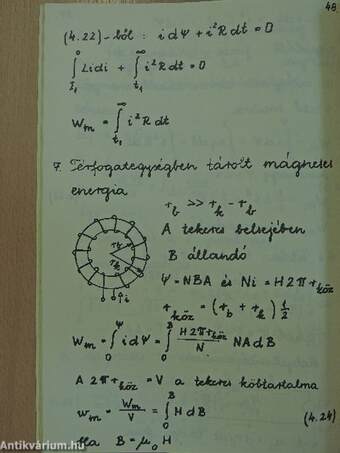 48
(4.22)-ből : i dΨ + i²R dt = 0
∫_{I₁}^{0} L i di + ∫_{t₁}^{∞} i²R dt = 0
W_m = ∫_{t₁}^{∞} i²R dt
7. Térfogategységben tárolt mágneses
energia
r_b >> r_k - r_b
A tekercs belsejében
B állandó
Ψ = NBA és Ni = H2πr_köz
r_köz = (r_b + r_k) ½
W_m = ∫_0^Ψ i dΨ = ∫_0^B (H2πr_köz / N) NA dB
A 2πr_köz = V a tekercs köbtartalma
w_m = W_m / V = ∫_0^B H dB (4.24)
Ha B = μ₀ H
Antikvárium.hu